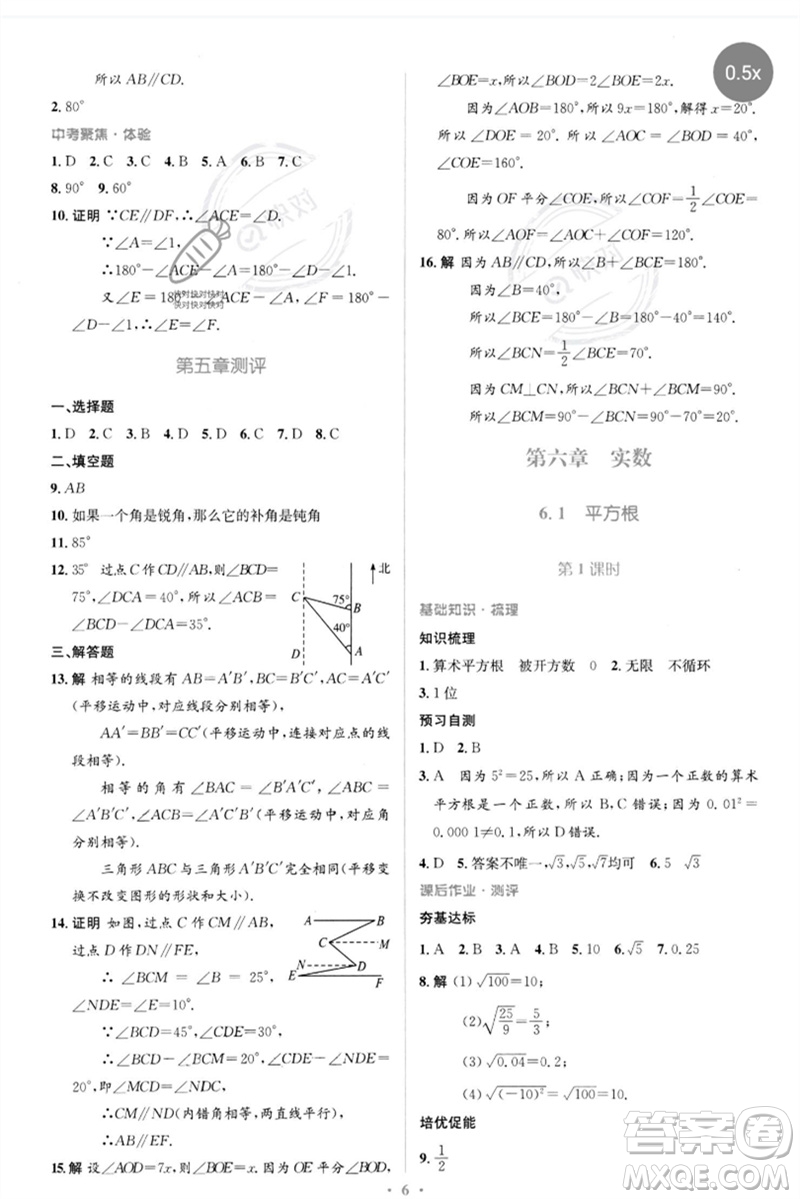 所以 AB∥CD.
2.80°
中考聚焦·体验
1.D 2.C 3.C 4.B 5.A 6.B 7.C
8.90° 9.60°
10.证明 ∵CE∥DF,∴∠ACE=∠D.
∵∠A=∠1,
∴180°-∠ACE-∠A=180°-∠D-∠1.
又∠E=180°-∠ACE-∠A,∠F=180°-
∠D-∠1,∴∠E=∠F.
第五章测评
一、选择题
1.D 2.C 3.C 4.B 5.B 6.C 7.D 8.C
二、填空题
9.AB
10.如果一个角是锐角,那么它的补角是钝角
11.85°
12.35° 过点 C 作 CD∥AB,所以∠BCD=
75°,∠DCA=40°,所以∠BCA=
∠BCD-∠DCA=35°.
北
C
75°
B
40°
D
A
三、解答题
13.解 相等的线段有 AB=A′B′,BC=B′C′,AC=A′C′
(平移运动中,对应线段相等).
AA′=BB′=CC′(平移运动中,连接对应点的线
段相等).
相等的角有∠BAC=∠B′A′C′,∠ABC=
∠A′B′C′,∠ACB=∠A′C′B′(平移运动中,对应角
分别相等).
三角形 ABC 与三角形 A′B′C′完全相同(平移变
换不改变图形的形状和大小).
14.证明 如图,过点 C 作 CM∥AB,
过点 D 作 DN∥FE,
∴∠BCM=∠B=25°,
∠NDE=∠E=10°.
∵∠BCD=45°,∠CDE=30°,
∴∠DCM=20°,∠CDN=20°,
即∠MCD=∠NDC.
∴CM∥ND(内错角相等,两直线平行).
∴AB∥EF.
A
B
C
M
N
D
E
F
15.解 设∠AOD=7x,所以∠BOD=2x.因为OE平分∠BOD,
∠BOE=x,所以∠BOD=2∠BOE=2x.
因为∠AOB=180°,所以 9x=180°,解得 x=20°.
所以∠DOE=20°.所以∠AOC=∠BOD=40°,
∠COE=160°.
因为 OF 平分∠COE,所以∠COF=1/2∠COE=
80°.所以∠AOF=∠AOC+∠COF=120°.
16.解 因为 AB∥CD,所以∠B+∠BCE=180°.
因为∠B=40°,
所以∠BCE=180°-∠B=180°-40°=140°.
所以∠BCN=1/2∠BCE=70°.
因为 CM⊥CN,所以∠BCN+∠BCM=90°.
所以∠BCM=90°-∠BCN=90°-70°=20°.
第六章 实数
6.1 平方根
第1课时
基础知识·梳理
知识梳理
1.算术平方根 被开方数 0 2.无限 不循环
3.1位
预习自测
1.D 2.B
3.A 因为 5²=25,所以 A 正确;一个正数的算术
平方根是正数,所以 B,C 错误;因为 0.01²=
0.000 1≠0.1,所以 D 错误.
4.D 5.答案不唯一,√3,√5,√7均可 6.5 √3
课后作业·测评
夯基达标
1.A 2.B 3.A 4.B 5.10 6.√5 7.0.25
8.解 (1)√100=10;
(2)√(25/9)=5/3;
(3)√0.04=0.2;
(4)√((-10)²)=10.
培优促能
9.1/2
6
0.5x
快对
快对快对快对
快对快对快对
答案圈
MXQE.COM